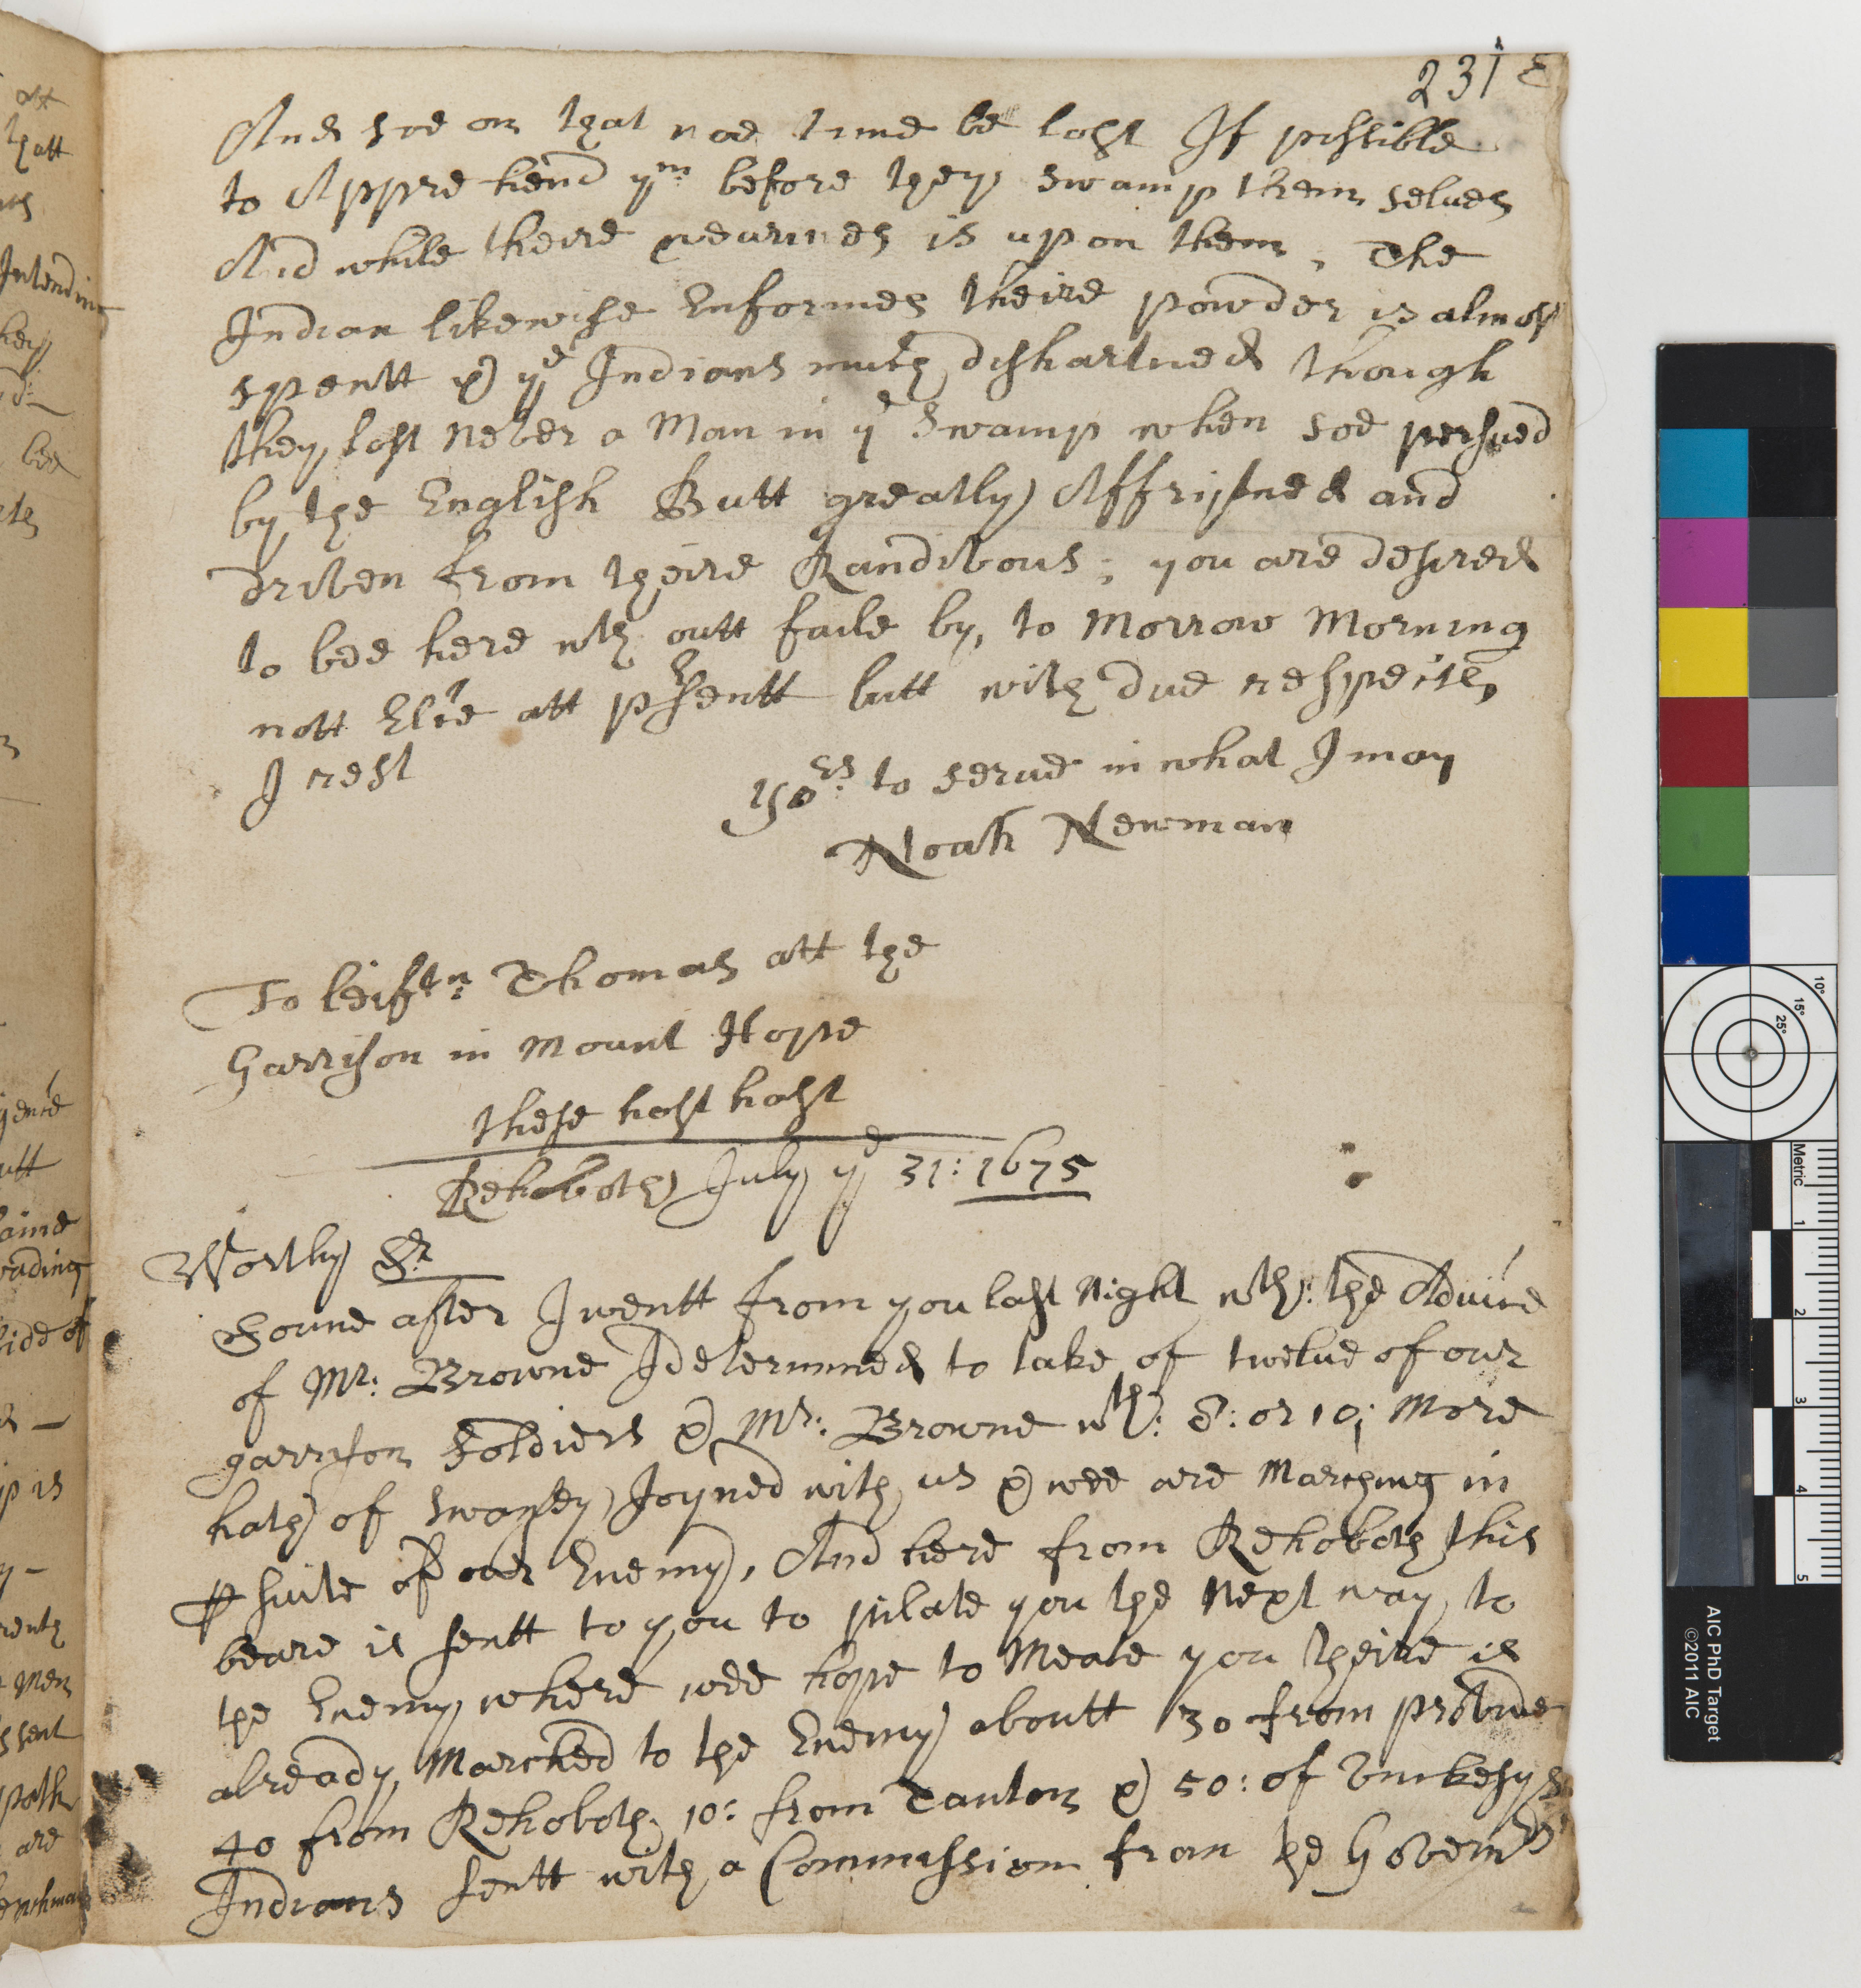 231
And soe on that noe time be lost If possible
to Apprehend ym before they swamp them selves
And while theire wearines is upon them, The
Indian likewise Enformes theire powder is almost
spentt & ye Indians much dishartned though
they lost Never a Man in ye Swamp when soe persued
by the English Butt greatly Affrigtned and
driven from theire Randivous; you are desired
to bee here wth outt faile by, to Morrow Morning
nott Elce att psentt butt with due respects
I rest
yors: to serue in what I may
Noah Newman
To leiftn: Thomas att the
Garrison in Mount Hope
these hast hast
Rehoboth July ye 31: 1675
Worthy Sr
Soune after I wentt from you last Night wth: the Aduice
of Mr: Browne I determined to take of twelue of our
garrison Soldiers & Mr: Browne wth: 8: or 10: More
hath of Swansey Joyned with us & wee are Marching in
psuite of our Enemy, And here from Rehoboth this
beare is sentt to you to pilate you the Next way to
the Enemy where wee hope to Meate you theire is
already Marched to the Enemy aboutt 30 from prouide
40 from Rehoboth 10: from Tanton & 50: of Vnckesys
Indians sentt with a Commission from the Govern
att
thatt
Intending
they
bee
utt
side of
p is
Men
sent
path
are
henchman
Metric
1
2
3
4
5
10°
15°
25°
AIC PhD Target
©2011 AIC